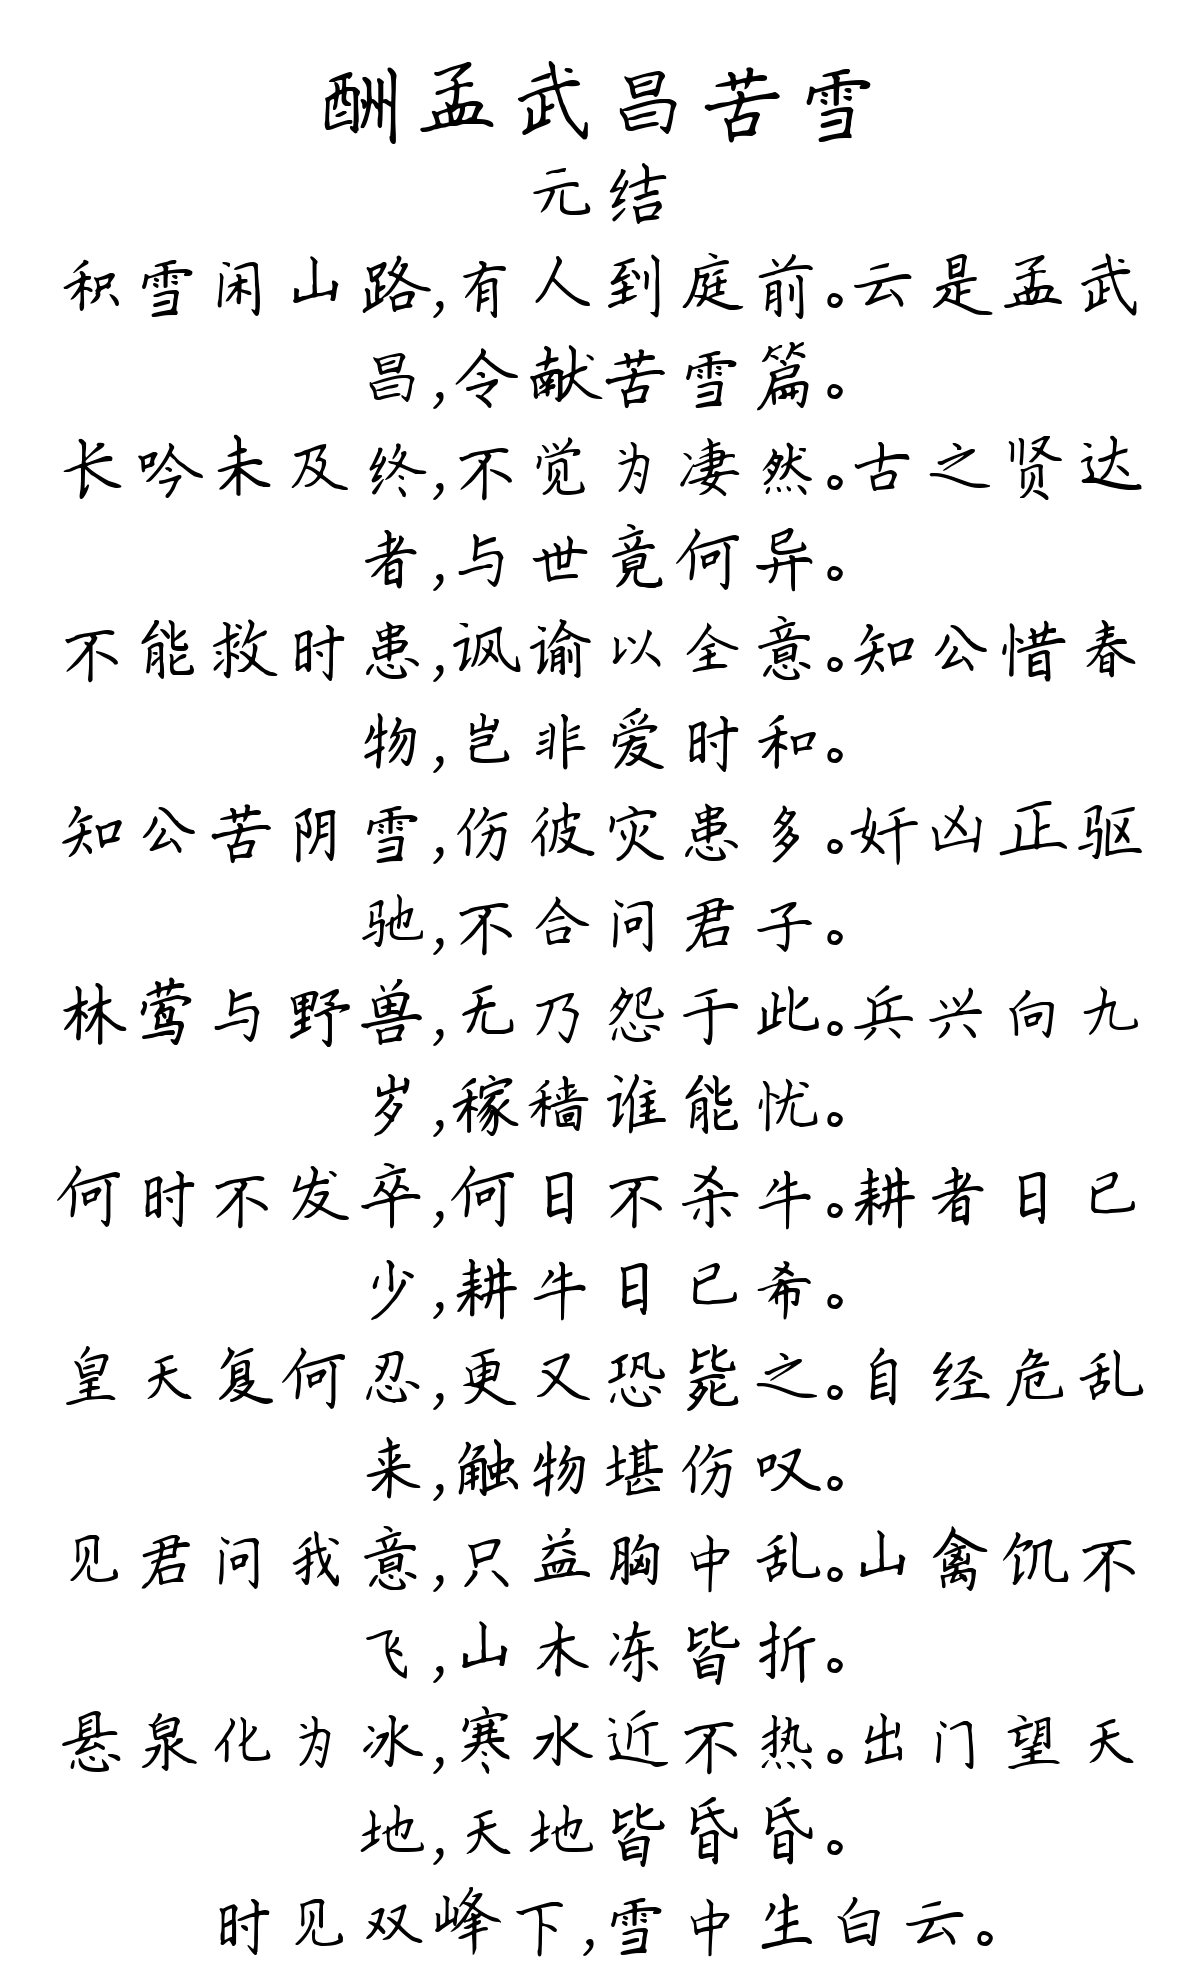 酬孟武昌苦雪
元结
积雪闲山路,有人到庭前。云是孟武
昌,令献苦雪篇。
长吟未及终,不觉为凄然。古之贤达
者,与世竟何异。
不能救时患,讽谕以全意。知公惜春
物,岂非爱时和。
知公苦阴雪,伤彼灾患多。奸凶正驱
驰,不合问君子。
林莺与野兽,无乃怨于此。兵兴向九
岁,稼穑谁能忧。
何时不发卒,何日不杀牛。耕者日已
少,耕牛日已希。
皇天复何忍,更又恐毙之。自经危乱
来,触物堪伤叹。
见君问我意,只益胸中乱。山禽饥不
飞,山木冻皆折。
悬泉化为冰,寒水近不热。出门望天
地,天地皆昏昏。
时见双峰下,雪中生白云。